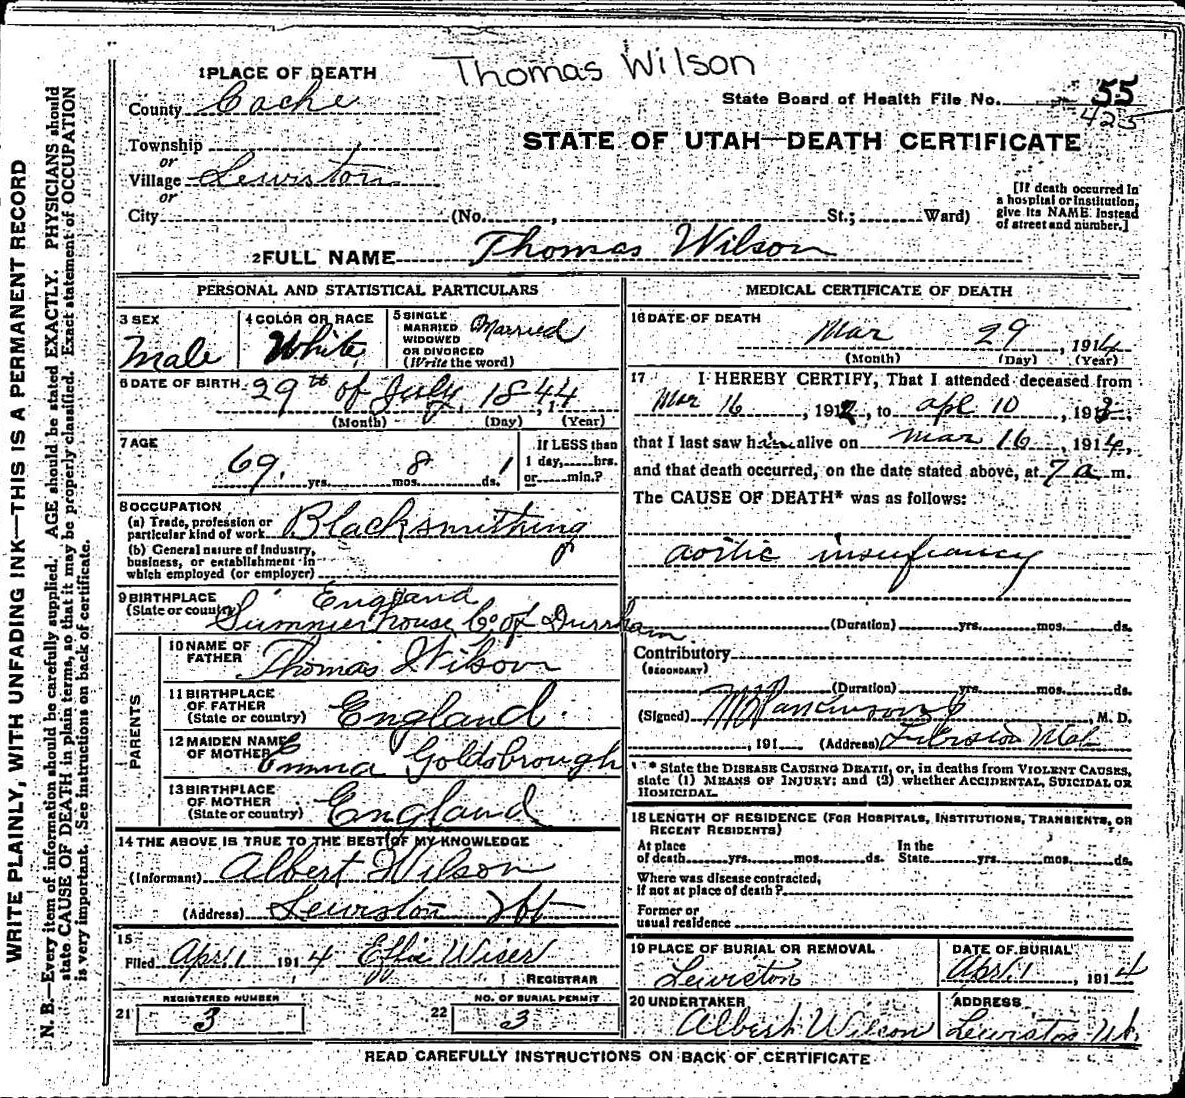 Thomas Wilson
1 PLACE OF DEATH
County Cache
State Board of Health File No. 55
425
STATE OF UTAH—DEATH CERTIFICATE
Township
or
Village Lewiston
or
City (No. , St.; Ward)
[If death occurred in
a hospital or institution,
give its NAME instead
of street and number.]
2 FULL NAME Thomas Wilson
PERSONAL AND STATISTICAL PARTICULARS
3 SEX
Male
4 COLOR OR RACE
White
5 SINGLE
MARRIED
WIDOWED
OR DIVORCED
(Write the word)
Married
6 DATE OF BIRTH 29th of July, 1844, 1
(Month) (Day) (Year)
7 AGE
69 yrs. 8 mos. 1 ds.
If LESS than
1 day, hrs.
or min.?
8 OCCUPATION
(a) Trade, profession or
particular kind of work Blacksmithing
(b) General nature of Industry,
business, or establishment in
which employed (or employer)
9 BIRTHPLACE
(State or country) England
Summerhouse Co of Durrham
PARENTS
10 NAME OF
FATHER Thomas Wilson
11 BIRTHPLACE
OF FATHER
(State or country) England
12 MAIDEN NAME
OF MOTHER Emma Goldsbrough
13 BIRTHPLACE
OF MOTHER
(State or country) England
14 THE ABOVE IS TRUE TO THE BEST OF MY KNOWLEDGE
(Informant) Albert Wilson
(Address) Lewiston
15
Filed Apr. 1 1914 Effie Wiser
REGISTRAR
REGISTERED NUMBER
21 3
NO. OF BURIAL PERMIT
22 3
MEDICAL CERTIFICATE OF DEATH
16 DATE OF DEATH
Mar 29, 1914
(Month) (Day) (Year)
17 I HEREBY CERTIFY, That I attended deceased from
Mar 16, 1912, to apl 10, 1913,
that I last saw him alive on mar 16, 1914,
and that death occurred, on the date stated above, at 7 a m.
The CAUSE OF DEATH* was as follows:
aortic
(Duration) yrs. mos. ds.
Contributory
(SECONDARY)
(Duration) yrs. mos. ds.
(Signed) , M. D.
, 191 (Address)
* State the DISEASE CAUSING DEATH, or, in deaths from VIOLENT CAUSES,
state (1) MEANS OF INJURY; and (2) whether ACCIDENTAL, SUICIDAL OR
HOMICIDAL.
18 LENGTH OF RESIDENCE (FOR HOSPITALS, INSTITUTIONS, TRANSIENTS, OR
RECENT RESIDENTS)
At place
of death yrs. mos. ds.
In the
State yrs. mos. ds.
Where was disease contracted,
if not at place of death?
Former or
usual residence
19 PLACE OF BURIAL OR REMOVAL
Lewiston
DATE OF BURIAL
Apr. 1, 1914
20 UNDERTAKER
Albert Wilson
ADDRESS
Lewiston Ut.
READ CAREFULLY INSTRUCTIONS ON BACK OF CERTIFICATE
WRITE PLAINLY, WITH UNFADING INK—THIS IS A PERMANENT RECORD
N. B.—Every item of information should be carefully supplied. AGE should be stated EXACTLY. PHYSICIANS should
state CAUSE OF DEATH in plain terms, so that it may be properly classified. Exact statement of OCCUPATION
is very important. See instructions on back of certificate.